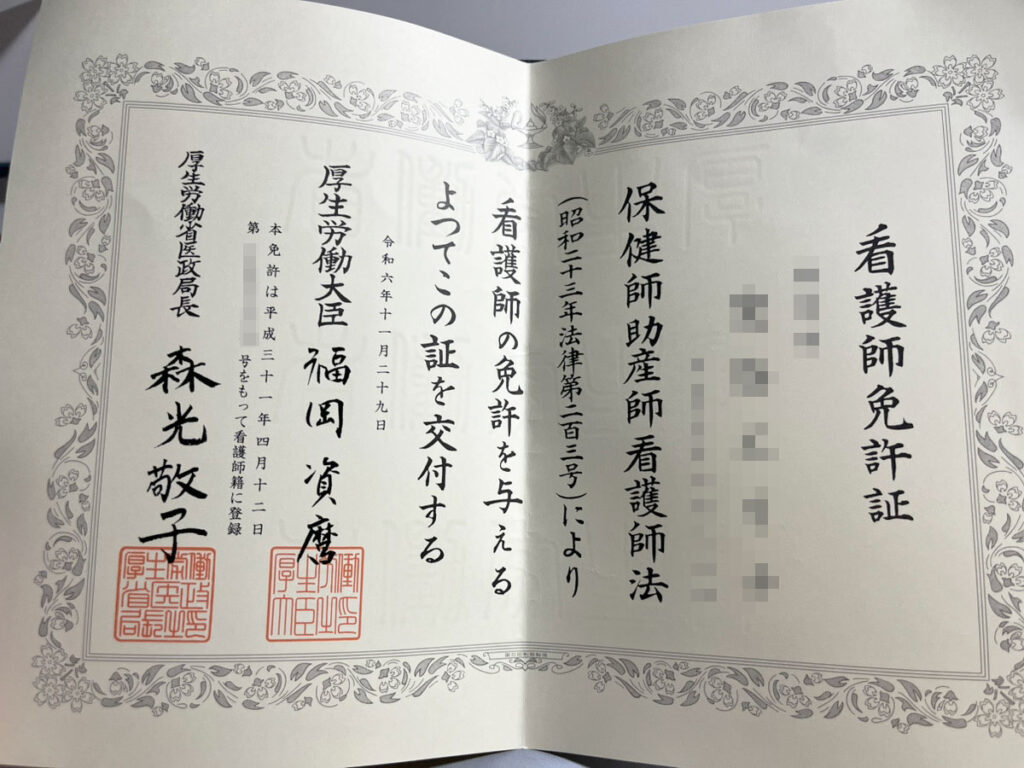 看護師免許証
保健師助産師看護師法
(昭和二十三年法律第二百三号)により
看護師の免許を与える
よつてこの証を交付する
令和六年十一月二十九日
厚生労働大臣 福岡資麿
本免許は平成三十一年四月十二日
第 号をもって看護師籍に登録
厚生労働省医政局長 森光敬子